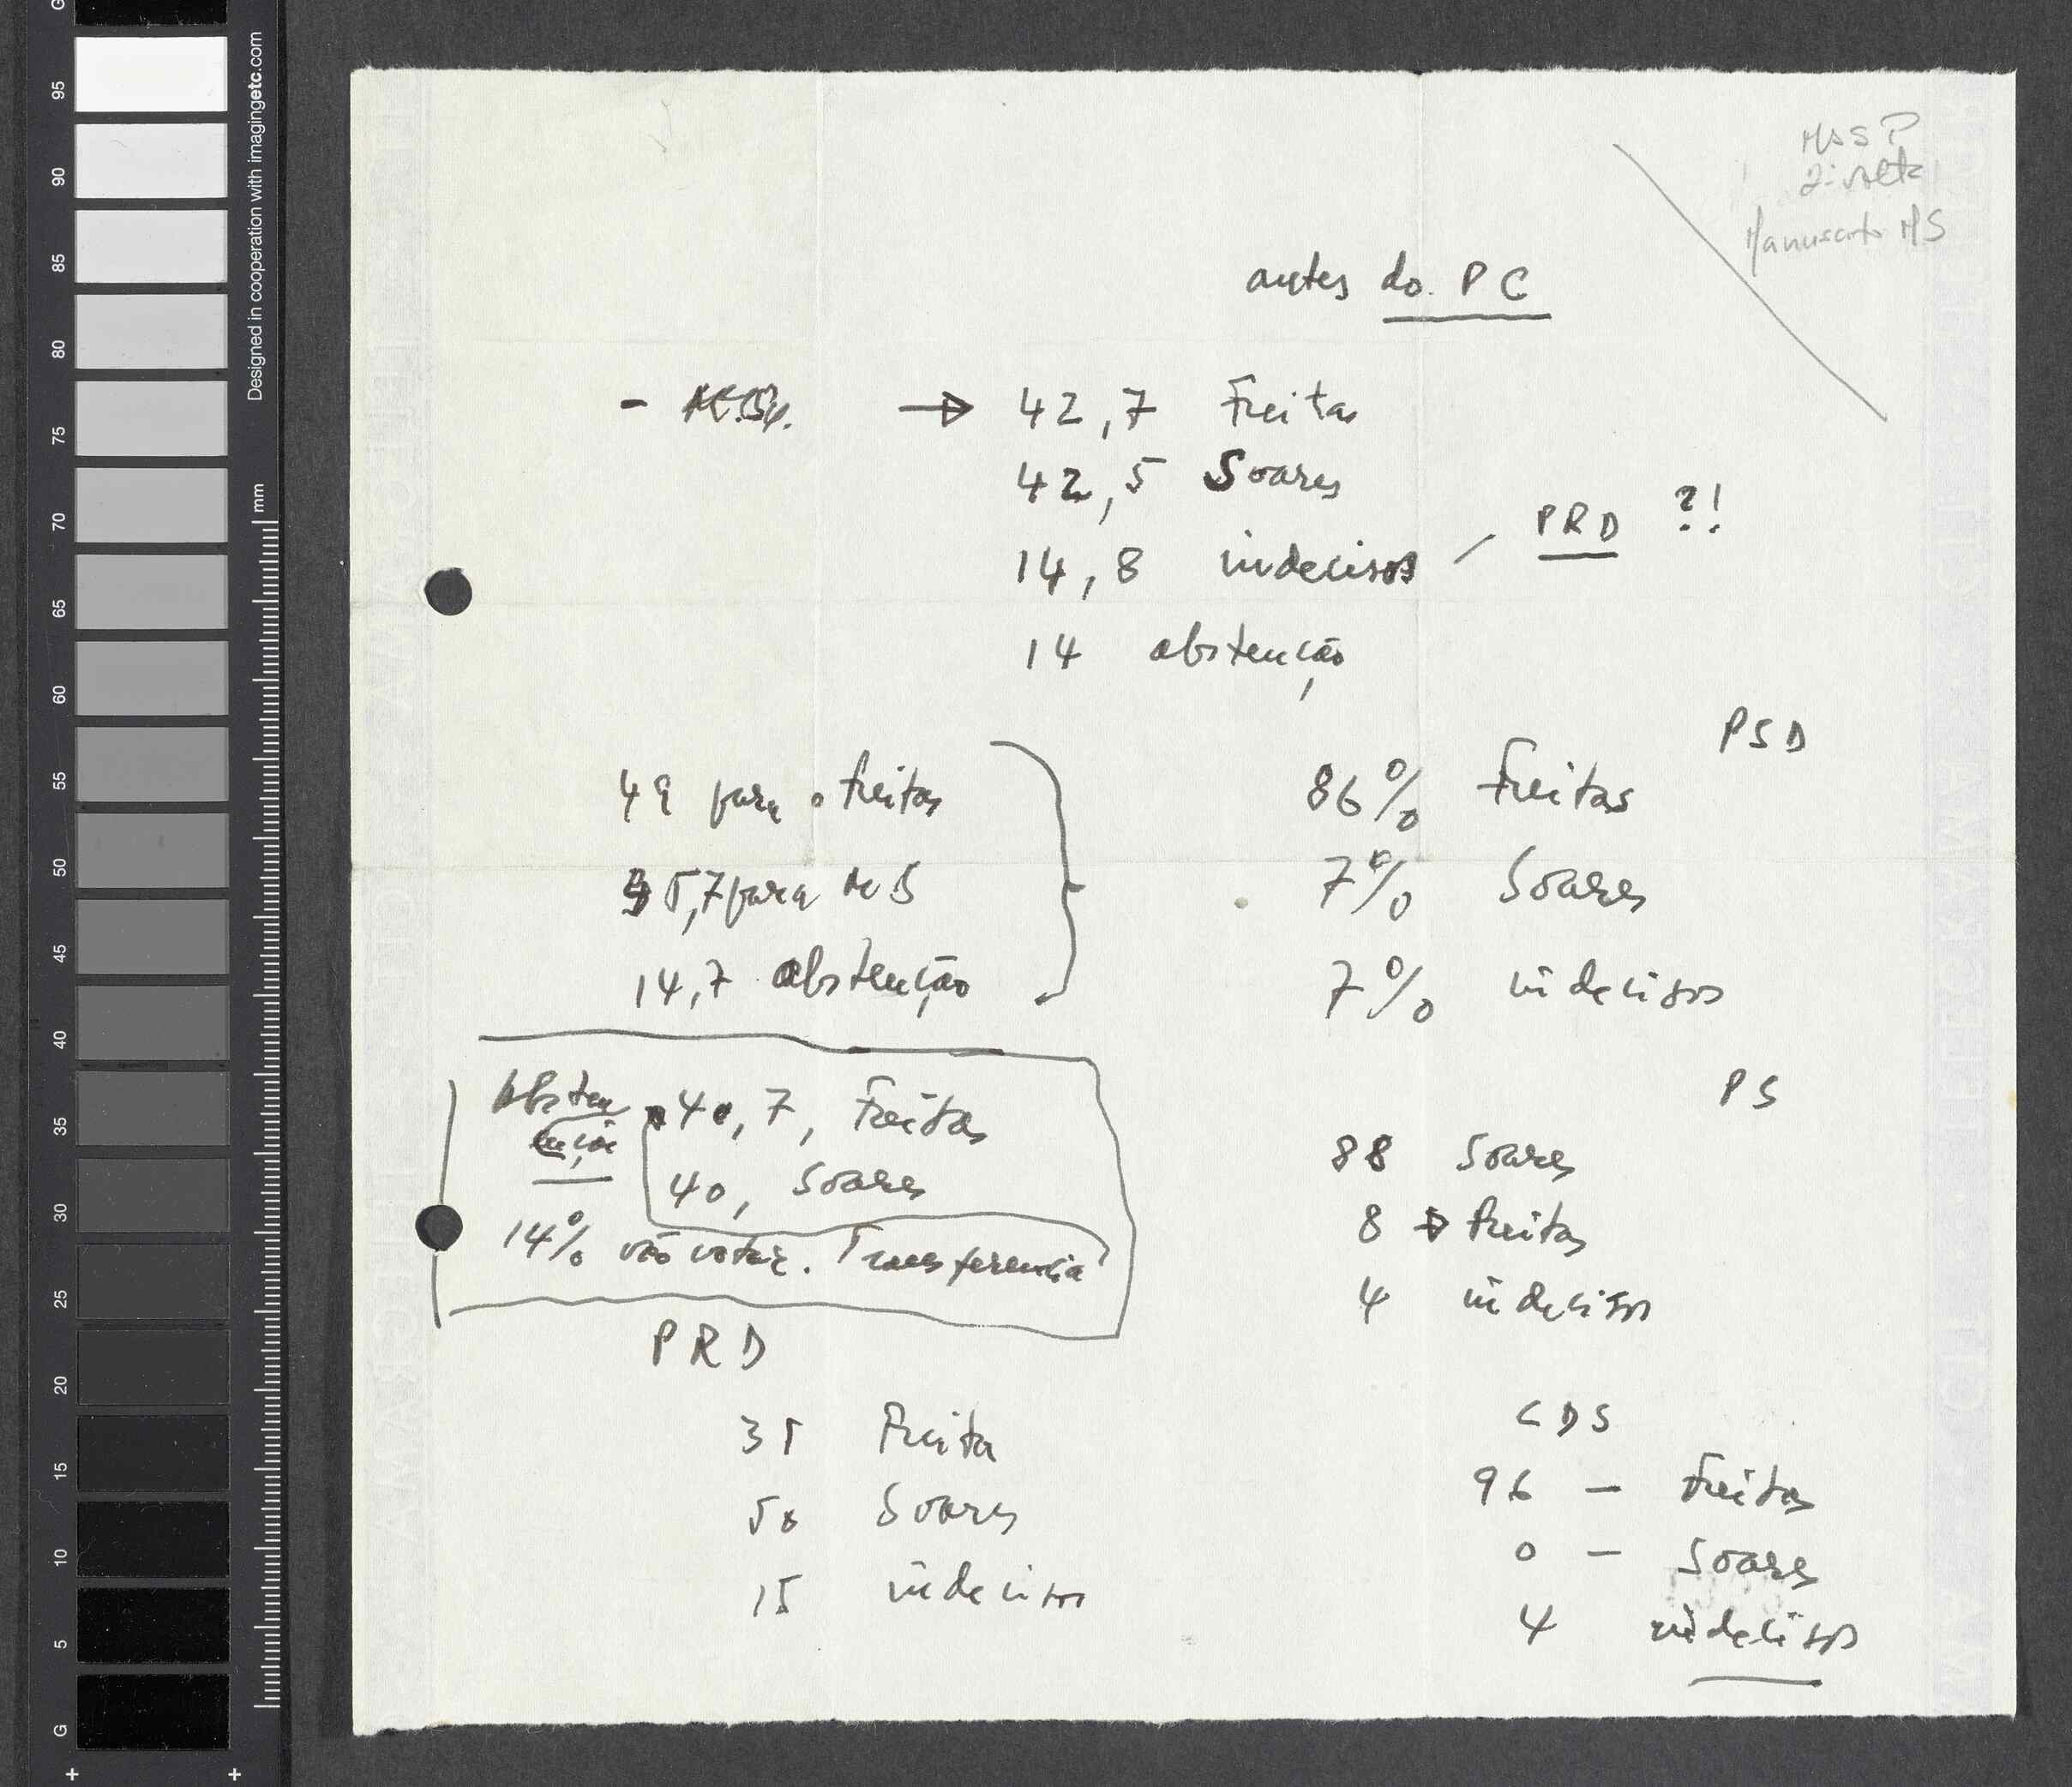 MASP
2ª volta
Manuscrito MS
antes do PC
- → 42,7 Freitas
42,5 Soares
14,8 indecisos / PRD ?!
14 abstenção
49 para o freitas
35,7 para MS
14,7 abstenção
PSD
86% Freitas
7% Soares
7% indecisos
Absten
ção
40,7, Freitas
40, Soares
14% não votar. Transferencia
PS
88 Soares
8 → Freitas
4 indecisos
PRD
35 Freitas
50 Soares
15 indecisos
CDS
96 - Freitas
0 - Soares
4 indecisos
Designed in cooperation with imagingetc.com
mm
95
90
85
80
75
70
65
60
55
50
45
40
35
30
25
20
15
10
5
G